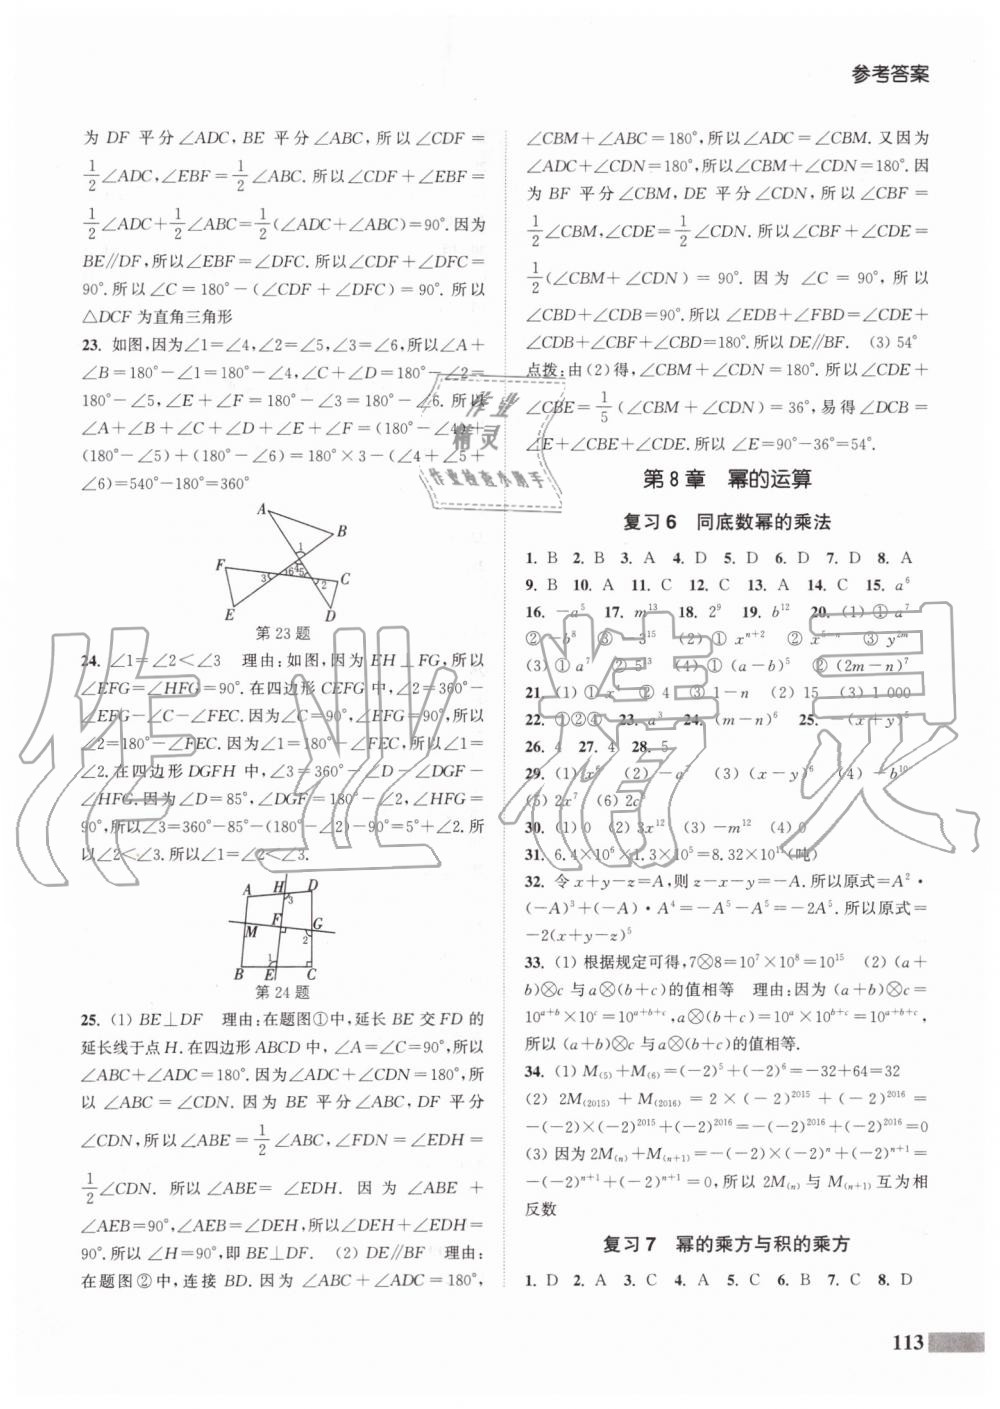 参考答案
为 DF 平分∠ADC,BE 平分∠ABC,所以∠CDF=
1/2∠ADC,∠EBF=1/2∠ABC.所以∠CDF+∠EBF=
1/2∠ADC+1/2∠ABC=1/2(∠ADC+∠ABC)=90°.因为
BE∥DF,所以∠EBF=∠DFC.所以∠CDF+∠DFC=
90°.所以∠C=180°-(∠CDF+∠DFC)=90°.所以
△DCF为直角三角形
23. 如图,因为∠1=∠4,∠2=∠5,∠3=∠6,所以∠A+
∠B=180°-∠1=180°-∠4,∠C+∠D=180°-∠2=
180°-∠5,∠E+∠F=180°-∠3=180°-∠6.所以
∠A+∠B+∠C+∠D+∠E+∠F=(180°-∠4)+
(180°-∠5)+(180°-∠6)=180°×3-(∠4+∠5+
∠6)=540°-180°=360°
A
B
1
F
3 6 4 5 2
C
E
D
第23题
24. ∠1=∠2<∠3 理由:如图,因为EH⊥FG,所以
∠EFG=∠HFG=90°.在四边形CEFG中,∠2=360°-
∠EFG-∠C-∠FEC.因为∠C=90°,∠EFG=90°,所以
∠2=180°-∠FEC.因为∠1=180°-∠FEC,所以∠1=
∠2.在四边形DGFH中,∠3=360°-∠D-∠DGF-
∠HFG.因为∠D=85°,∠DGF=180°-∠2,∠HFG=
90°,所以∠3=360°-85°-(180°-∠2)-90°=5°+∠2.所
以∠2<∠3.所以∠1=∠2<∠3.
H D
A
3
F
M
G
2
1
B E C
第24题
25. (1) BE⊥DF 理由:在题图①中,延长BE交FD的
延长线于点H.在四边形ABCD中,∠A=∠C=90°,所以
∠ABC+∠ADC=180°.因为∠ADC+∠CDN=180°,所
以∠ABC=∠CDN.因为BE平分∠ABC,DF平分
∠CDN,所以∠ABE=1/2∠ABC,∠FDN=∠EDH=
1/2∠CDN.所以∠ABE=∠EDH.因为∠ABE+
∠AEB=90°,∠AEB=∠DEH,所以∠DEH+∠EDH=
90°.所以∠H=90°,即BE⊥DF. (2) DE∥BF 理由:
在题图②中,连接BD.因为∠ABC+∠ADC=180°,
∠CBM+∠ABC=180°,所以∠ADC=∠CBM.又因为
∠ADC+∠CDN=180°,所以∠CBM+∠CDN=180°.因
为BF平分∠CBM,DE平分∠CDN,所以∠CBF=
1/2∠CBM,∠CDE=1/2∠CDN.所以∠CBF+∠CDE=
1/2(∠CBM+∠CDN)=90°.因为∠C=90°,所以
∠CBD+∠CDB=90°.所以∠EDB+∠FBD=∠CDE+
∠CDB+∠CBF+∠CBD=180°.所以DE∥BF. (3) 54°
点拨:由(2)得,∠CBM+∠CDN=180°.所以∠CDE+
∠CBE=1/5(∠CBM+∠CDN)=36°,易得∠DCB=
∠E+∠CBE+∠CDE.所以∠E=90°-36°=54°.
第8章 幂的运算
复习6 同底数幂的乘法
1. B 2. B 3. A 4. D 5. D 6. D 7. D 8. A
9. B 10. A 11. C 12. C 13. A 14. C 15. a⁶
16. -a⁵ 17. m¹³ 18. 2⁹ 19. b¹² 20. (1) ① a⁷
② -b⁸ ③ 3¹⁵ (2) ① xⁿ⁺² ② x⁵⁻ⁿ ③ y²ᵐ
(3) ① a⁷ ② 5³ (4) ① (a-b)⁵ ② (2m-n)⁷
21. (1) ① x⁴ ② 4 ③ 1-n (2) 15 (3) 1 000
22. ①②④ 23. a³ 24. (m-n)⁶ 25. -(x+y)⁵
26. 4 27. 4 28. 5
29. (1) x⁶ (2) -a⁷ (3) (x-y)⁶ (4) -b¹⁰
(5) 2x⁷ (6) 2c⁵
30. (1) 0 (2) 3x¹² (3) -m¹² (4) 0
31. 6.4×10⁶×1.3×10⁵=8.32×10¹¹(吨)
32. 令x+y-z=A,则z-x-y=-A.所以原式=A²·
(-A)³+(-A)·A⁴=-A⁵-A⁵=-2A⁵.所以原式=
-2(x+y-z)⁵
33. (1) 根据规定可得,7⊗8=10⁷×10⁸=10¹⁵ (2) (a+
b)⊗c与a⊗(b+c)的值相等 理由:因为(a+b)⊗c=
10ᵃ⁺ᵇ×10ᶜ=10ᵃ⁺ᵇ⁺ᶜ,a⊗(b+c)=10ᵃ×10ᵇ⁺ᶜ=10ᵃ⁺ᵇ⁺ᶜ,
所以(a+b)⊗c与a⊗(b+c)的值相等.
34. (1) M₍₅₎+M₍₆₎=(-2)⁵+(-2)⁶=-32+64=32
(2) 2M₍₂₀₁₅₎+M₍₂₀₁₆₎=2×(-2)²⁰¹⁵+(-2)²⁰¹⁶=
-(-2)×(-2)²⁰¹⁵+(-2)²⁰¹⁶=-(-2)²⁰¹⁶+(-2)²⁰¹⁶=0
(3) 因为2M₍ₙ₎+M₍ₙ₊₁₎=-(-2)×(-2)ⁿ+(-2)ⁿ⁺¹=
-(-2)ⁿ⁺¹+(-2)ⁿ⁺¹=0,所以2M₍ₙ₎与M₍ₙ₊₁₎互为相
反数
复习7 幂的乘方与积的乘方
1. D 2. A 3. C 4. A 5. C 6. B 7. C 8. D
113
作业
精灵
作业检查小助手
作业精灵